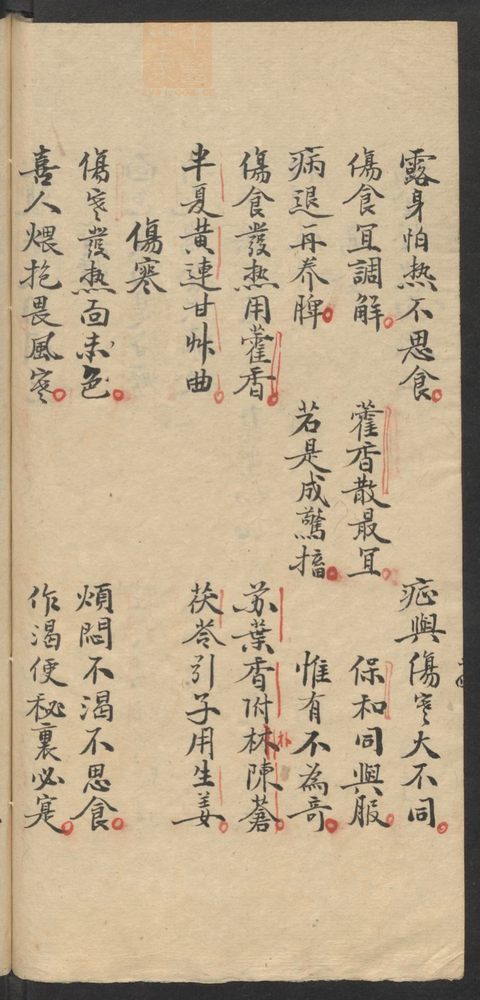 露身怕热不思食。 症與傷寒大不同。
傷食冝調解。 藿香散最冝。 保和同與服。
病退再养脾。 若是成驚搐。 惟有不為奇。
傷食發热用藿香。 苏葉香附朴陳蒼。
半夏黄連甘艸曲 茯苓引子用生姜。
傷寒
傷寒發热面赤色。 煩悶不渴不思食。
喜人煨抱畏風寒。 作渴便秘裏必寔。